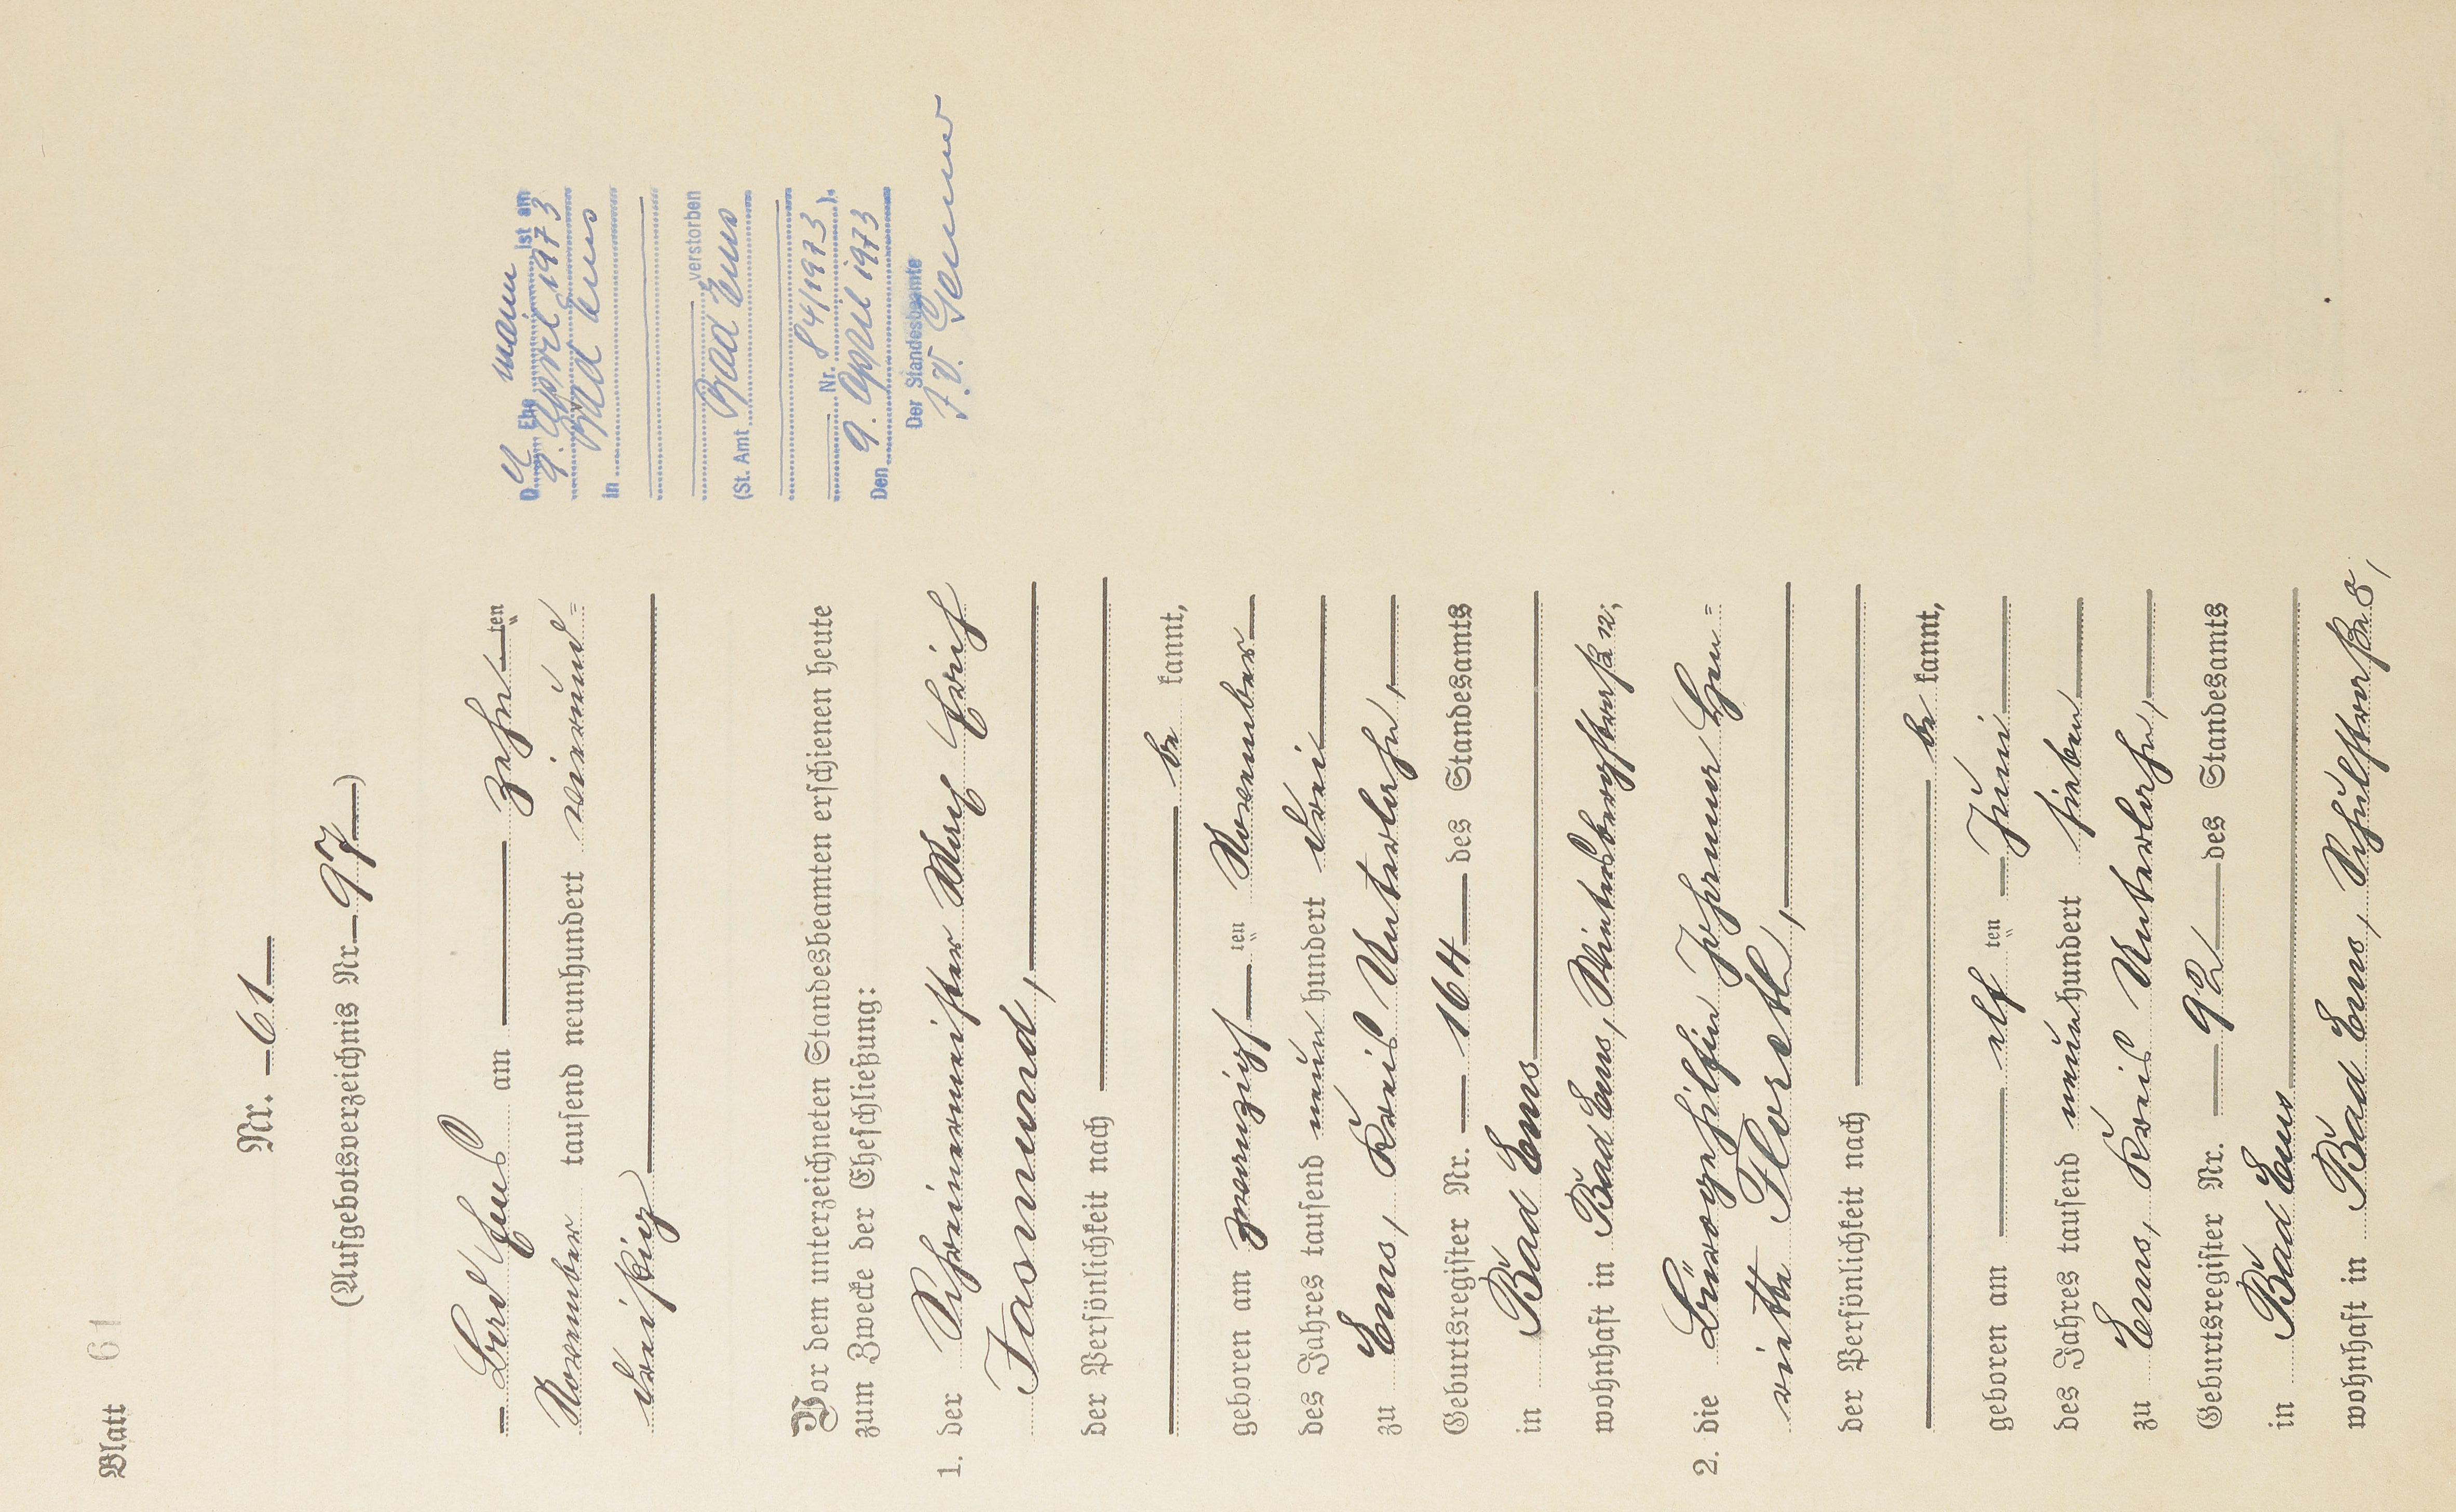 Blatt 61
Nr. 61
(Aufgebotsverzeichnis Nr. 97)
Bad Ems am zehn ten
November tausend neunhundert vierund=
dreißig
Vor dem unterzeichneten Standesbeamten erschienen heute
zum Zwecke der Eheschließung:
1. der Schreinermeister Karl Erich
Jasmund,
der Persönlichkeit nach
be kannt,
geboren am zwanzigs ten November
des Jahres tausend neun hundert drei
zu Ems, Kreis Unterlahn,
Geburtsregister Nr. 164 des Standesamts
in Bad Ems
wohnhaft in Bad Ems, Wintersbergstraße 12;
2. die Bürogehilfin Johanna Hen=
riette Floreth,
der Persönlichkeit nach
be kannt,
geboren am elf ten Juni
des Jahres tausend neun hundert sieben
zu Ems, Kreis Unterlahn,
Geburtsregister Nr. 92 des Standesamts
in Bad Ems
wohnhaft in Bad Ems, Schulstraße 8,
Der Ehe mann ist am
9. April 1973
in Bad Ems
verstorben
(St. Amt Bad Ems
Nr. 84/1973).
Den 9. April 1973
Der Standesbeamte
I.V.